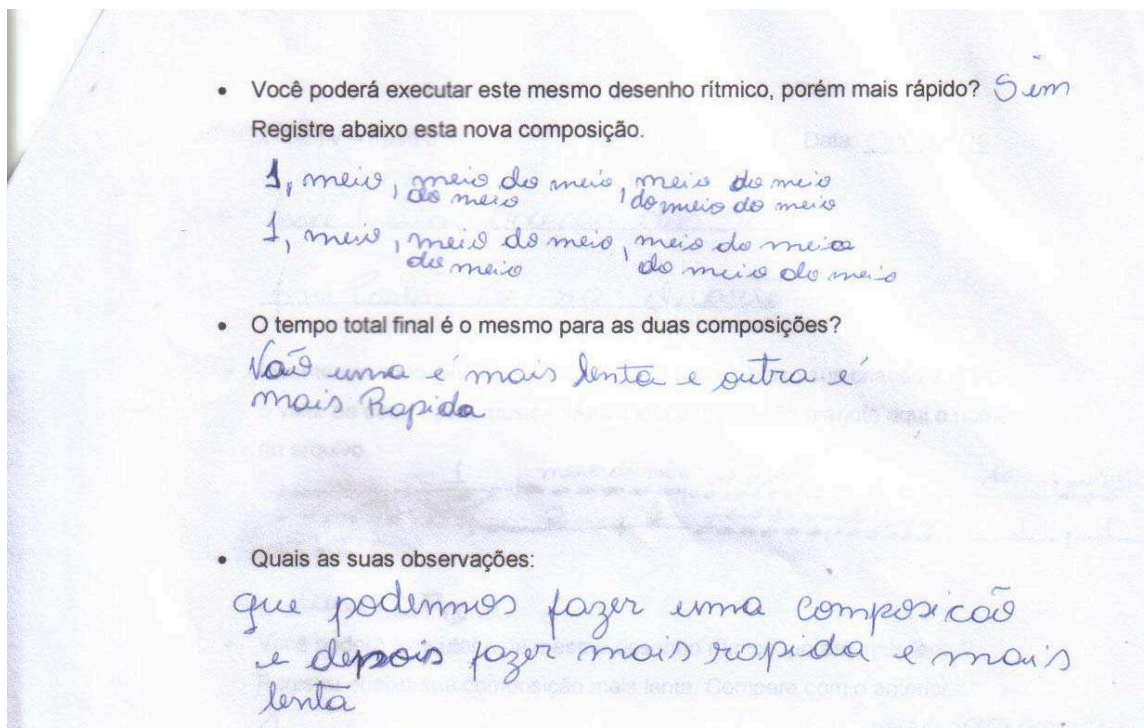 • Você poderá executar este mesmo desenho rítmico, porém mais rápido? Sim
Registre abaixo esta nova composição.
1, meio, meio do meio, meio do meio
do meio, do meio do meio
1, meio, meio do meio, meio do meio
do meio do meio do meio
• O tempo total final é o mesmo para as duas composições?
Não uma é mais lenta e outra é
mais Rapida
• Quais as suas observações:
que podemos fazer uma composicão
e depois fazer mais rapida e mais
lenta